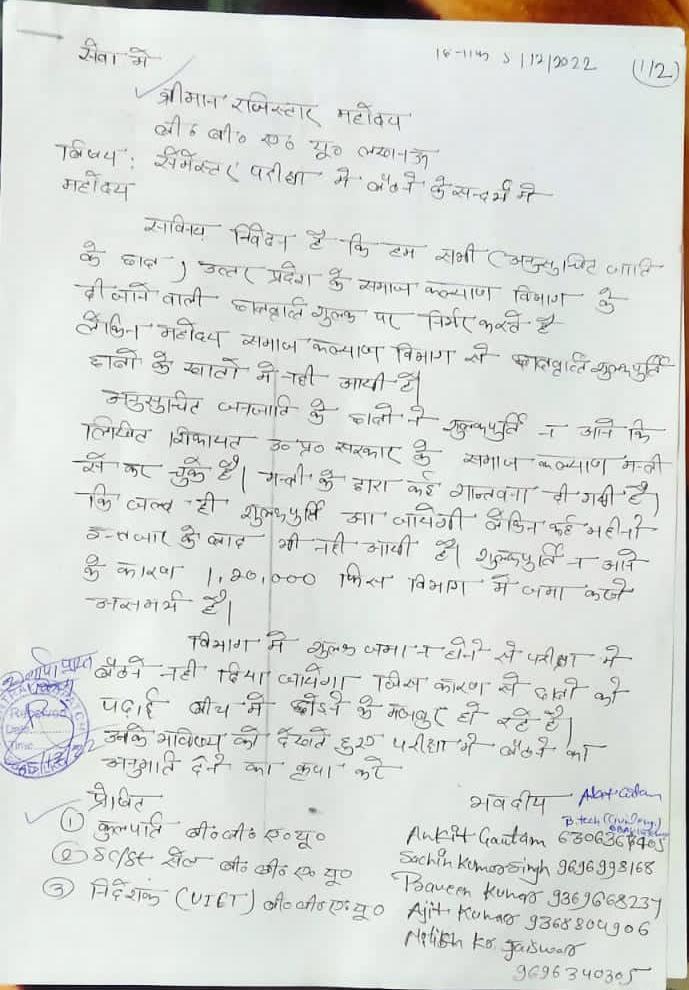 सेवा में
दिनांक 5/12/2022
(1/2)
श्रीमान रजिस्टार महोदय
बी० बी० ए० यू० लखनऊ
विषय: सेमेस्टर परीक्षा में बैठने के सन्दर्भ में
महोदय
सविनय निवेदन है कि हम सभी (अनुसुचित जाति
के छात्र) उत्तर प्रदेश के समाज कल्याण विभाग के
दी जाने वाली छात्रवृत्ति शुल्क पर निर्भर करते है
लेकिन महोदय समाज कल्याण विभाग से छात्रवृत्ति शुल्कपुर्ति
छात्रों के खातों में नही आयी है।
अनुसुचित जनजाति के छात्रों ने शुल्कपुर्ति न आने कि
लिखित शिकायत उ० प्र० सरकार के समाज कल्याण मन्त्री
से कर चुके है। मन्त्री के द्वारा कई शान्तवना दी गयी है।
कि जल्द ही शुल्कपुर्ति आ जायेगी लेकिन कई महीनो
इन्तजार के बाद भी नही आयी है। शुल्कपुर्ति न आने
के कारण 1,20,000 फिस विभाग में जमा करने
असमर्थ है।
विभाग में शुल्क जमा न होने से परीक्षा में
बैठने नही दिया जायेगा जिस कारण से छात्रों को
पढाई बीच में छोडने के मजबुर हो रहे है।
उनके भविष्य को देखते हुए परीक्षा में बैठने का
अनुमति देने का कृपा करे
Received
Date
Time
प्रेषित
① कुलपति बी० बी० ए० यू०
② SC/St सेल बी० बी० ए० यू०
③ निर्देशक (UIET) बी० बी० ए० यू०
भवदीय
B.tech (Civil Eng.)
Ankit Gautam 6306368405
Sachin Kumar Singh 9696998168
Praveen Kumar 9369668237
Ajit Kumar 9368804906
Nitish Kr. Jaiswar
9696340305